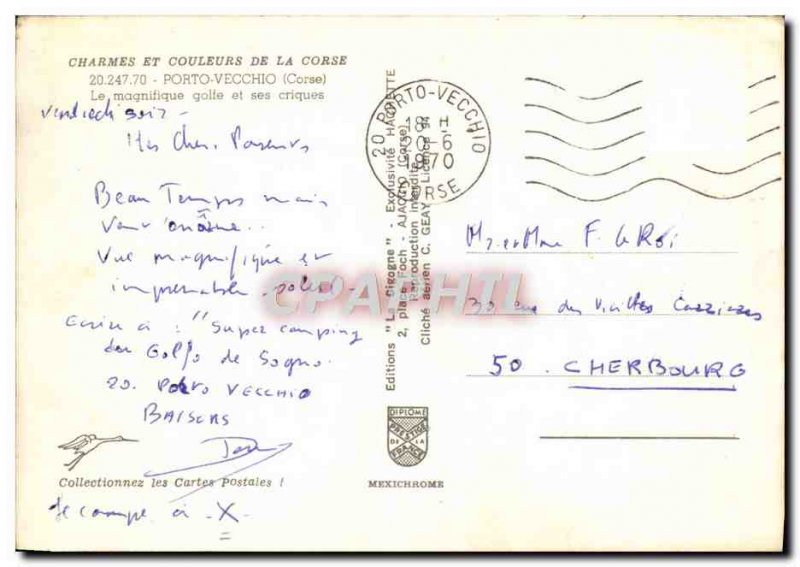 CHARMES ET COULEURS DE LA CORSE
20.247.70 - PORTO-VECCHIO (Corse)
Le magnifique golfe et ses criques
Vendredi soir -
Mes Chers Parents
Beau Temps mais
Vue magnifique et
imprenable
Ecrire à : "Super camping
du Golfo de Sogno.
20. Porto VECCHIO
BAISERS
Collectionnez les Cartes Postales !
Je campe à -X-
Editions "La Cigogne" - Exclusivité HACHETTE
2, place Foch - AJACCIO (Corse)
Reproduction interdite
Cliché aérien C. GEAY - Licence 94
DIPLOME
PRESTIGE
DE LA
FRANCE
MEXICHROME
20 PORTO-VECCHIO
18 H
30-6
1970
CORSE
Mr et Mme F. Le Roi
30 rue des Vieilles Carrières
50. CHERBOURG
CPAPHIL